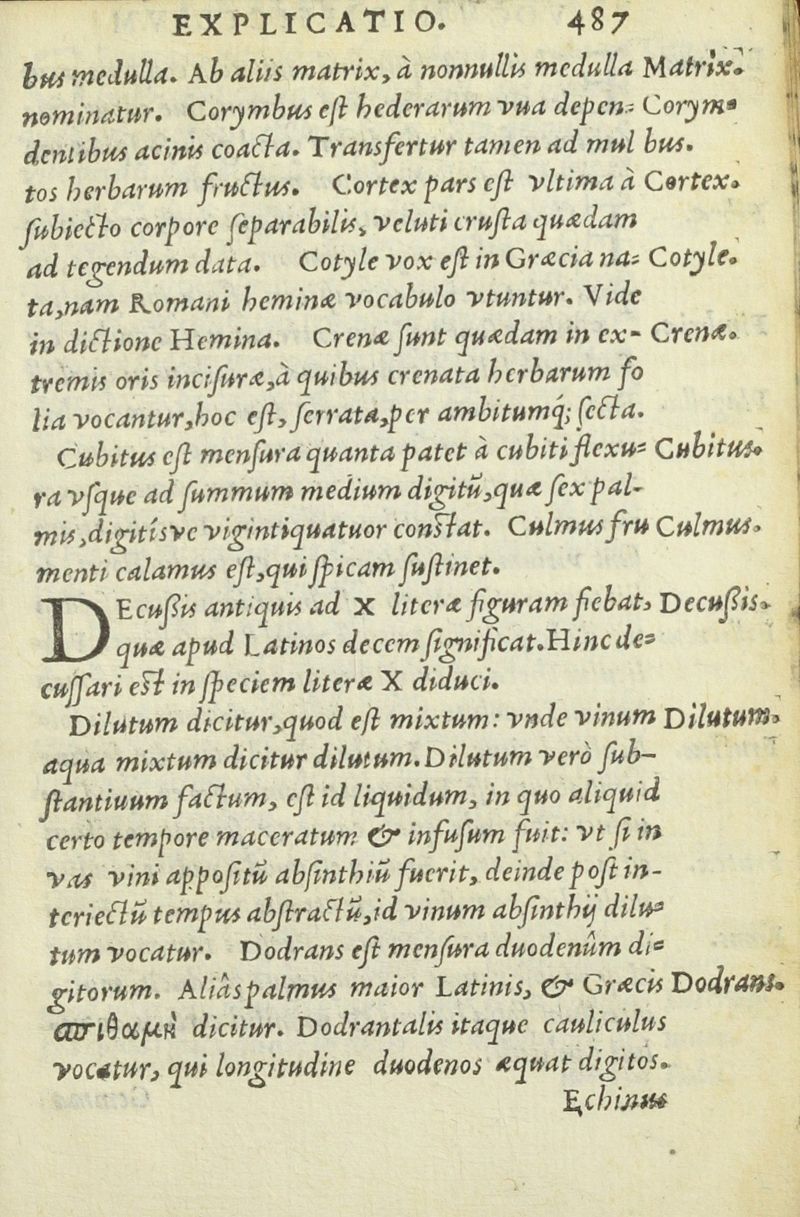 EXPLICATIO. 487
bus medulla. Ab aliis matrix, à nonnullis medulla Matrix.
nominatur. Corymbus est hederarum vua depen= Corym=
dentibus acinis coacta. Transfertur tamen ad mul bus.
tos herbarum fructus. Cortex pars est vltima à Cortex.
subiecto corpore separabilis, veluti crusta quædam
ad tegendum data. Cotyle vox est in Græcia na= Cotyle.
ta, nam Romani heminæ vocabulo vtuntur. Vide
in dictione Hemina. Crenæ sunt quædam in ex- Crenæ.
tremis oris incisuræ, à quibus crenata herbarum fo
lia vocantur, hoc est, serrata, per ambitumq́; secta.
Cubitus est mensura quanta patet à cubiti flexu= Cubitus.
ra vsque ad summum medium digitū, quæ sex pal-
mis, digitísve vigintiquatuor constat. Culmus fru Culmus.
menti calamus est, qui spicam sustinet.
DEcussis antiquis ad X literæ figuram fiebat, Decussis.
quæ apud Latinos decem significat. Hinc de=
cussari est in speciem literæ X diduci.
Dilutum dicitur, quod est mixtum: vnde vinum Dilutum.
aqua mixtum dicitur dilutum. Dilutum verò sub-
stantiuum factum, est id liquidum, in quo aliquid
certo tempore maceratum & infusum fuit: vt si in
vas vini appositū absinthiū fuerit, deinde post in-
teriectū tempus abstractū, id vinum absinthij dilu=
tum vocatur. Dodrans est mensura duodenûm di=
gitorum. Aliâs palmus maior Latinis, & Græcis Dodrans.
σπιθαμὴ dicitur. Dodrantalis itaque cauliculus
vocatur, qui longitudine duodenos æquat digitos.
Echinus